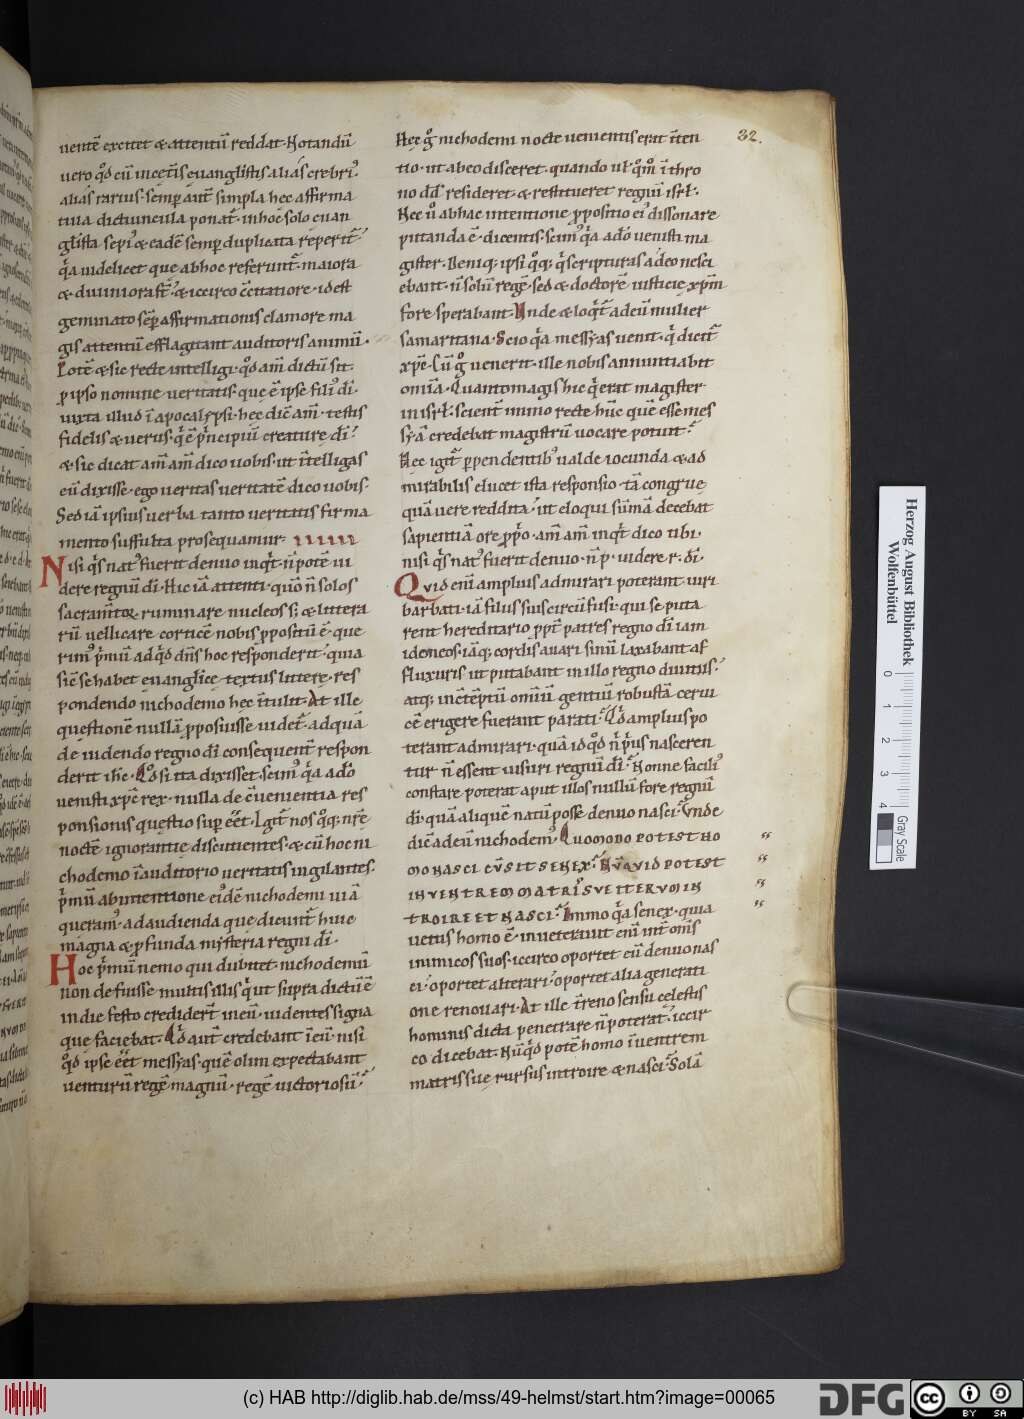 uentē excitet & attentū reddat. Notandū
uero qd̄ cū incet̄is euanglistis aliás crebri᷒
aliás rarius. semp aut̄ simpla hec affirma
tiua dictiuncula ponat᷑. in hoc solo euan
glista sepi᷒ & eadē semp duplicata reperit᷑.
q̄a uidelicet que ab hoc referunt᷑. maiora
& diuiniora st̄. & iccirco c̄citatiore. id est
geminato sēp affirmationis clamore ma
gis attentū efflagitant auditoris animū.
Potē & sic recte intelligi. qd̄ am̄ dictū sit.
p ipso nomine ueritatis. que ē ipse fili᷒ dī.
iuxta illud ī apocalypsi. hec dic̄ am̄. testis
fidelis & uerus. q̄ ē p̄ncipiū creature dī.
& sic dicat am̄ am̄ dico uobis. ut ītelligas
eū dixisse. ego ueritas ueritatē dico uobis.
Sed iā ipsius uerba tanto ueritatis firma
mento suffulta prosequamur.
Nisi q̄s nat᷒ fuerit denuo inqt̄. n̄ potē ui
dere regnū dī. Hic iā attenti. quō n̄ solos
sacram̄toꝝ ruminare nucleos s; & littera
rū uellicare corticē nobis ppositū ē. que
rim᷒ p̄mū ad qd̄ dn̄s hoc responderit. quia
sic se habet euanglice textus littere. res
pondendo nichodemo hec ītulit. At ille
questionē nullā pposuisse uidet᷑. ad quā
de uidendo regno dī consequent᷑ respon
derit ih̄c. Qd̄ si ita dixisset. scim᷒ q̄a a dō
uenisti xp̄c rex. nulla de c̄uenientia res
ponsionis questio sup eēt. Igit᷑ nos qq; nr̄e
noctē ignorantie discutientes. & cū hoc ni
chodemo ī auditorio ueritatis uigilantes.
p̄mū ab intentione ei᷒dē nichodemi uiā
queram᷒ ad audienda que dicunt᷑ huic
magna & pfunda mysteria regni dī.
Hoc p̄mū nemo qui dubitet. nichodemū
non de fuisse multis illis q̄ ut supra dictū ē
in die festo credidert̄ in eū. uidentes signa
que faciebat. Qd̄ aut̄ credebant ī eū. nisi
qd̄ ipse eēt messyas. quē olim expectabant
uenturū regē magnū. regē uictoriosū.
32.
Hec g̊ nichodemi nocte uenientis erat īten
tio. ut ab eo disceret. quando ul̄ qm̊ ī thro
no dd̄ resideret. & restitueret regnū isrl̄.
Nec ů ab hac intentione ppositio ei᷒ dissonare
putanda ē. dicentis. scim᷒ q̄a a dō uenisti ma
gister. Neniq; ipsi qq; q̄ scripturas adeo nesci
ebant. n̄ solū regē. sed & doctorē iusticie xp̄m
fore sperabant. Vnde & loqt᷑ ad eū mulier
samaritana. Scio q̄a messyas uenit. q̄ dicit᷑
xp̄c. Cū g̊ uenerit. ille nobis annuntiabit
omīa. Quanto magis hic q̄ erat magister
in isrl̄. scient᷑ immo recte hūc quē esse mes
syā credebat magistrū uocare potuit.
Hec igit᷑ ppendentib᷒ ualde iocunda & ad
mirabilis elucet ista responsio. tā congrue
quā uere reddita. ut eloqui sūmā decebat
sapientiā ore pp̄o. am̄ am̄ inqt̄ dico tibi.
nisi q̄s nat᷒ fuerit denuo. n̄ p̄. uidere. r. dī.
Quid enī amplius admirari poterant uiri
barbati. iā filiis suis circūfusi. qui se puta
rent hereditario ppt̄ patres regno dī iam
idoneos. iāq; cordis auari sinū laxabant af
fluxuris ut putabant in illo regno diuitiis.
atq; in c̄tēptū omīū gentiū robustā cerui
cē erigere fuerant parati. Qd̄ amplius po
terant admirari. quā id qd̄ n̄ p̄us nasceren
tur. n̄ essent uisuri regnū dī. Nonne facili᷒
constare poterat aput illos nullū fore regnū
dī. quā aliquē natū posse denuo nasci. Vnde
dic̄ ad eū nichodem᷒. QUOMODO POTEST HO
MO NASCI CŪ SIT SENEX. NŪQUID POTEST
IN VENTREM MATRIS SUE ITERUM IN
TROIRE ET NASCI. Immo q̄a senex. quia
uetus homo ē. inueterauit enī int̄ om̄s
inimicos suos. iccirco oportet eū denuo nas
ci. oportet alterari. oportet alia generati
one renouari. At ille t̄reno sensu celestis
hominis dicta penetrare n̄ poterat. iccir
co dicebat. Nūqd̄ potē homo ī uentrem
matris sue rursus introire & nasci. Solā
Herzog August Bibliothek
Wolfenbüttel
0 1 2 3 4
Gray Scale
(c) HAB http://diglib.hab.de/mss/49-helmst/start.htm?image=00065
DFG
cc BY SA